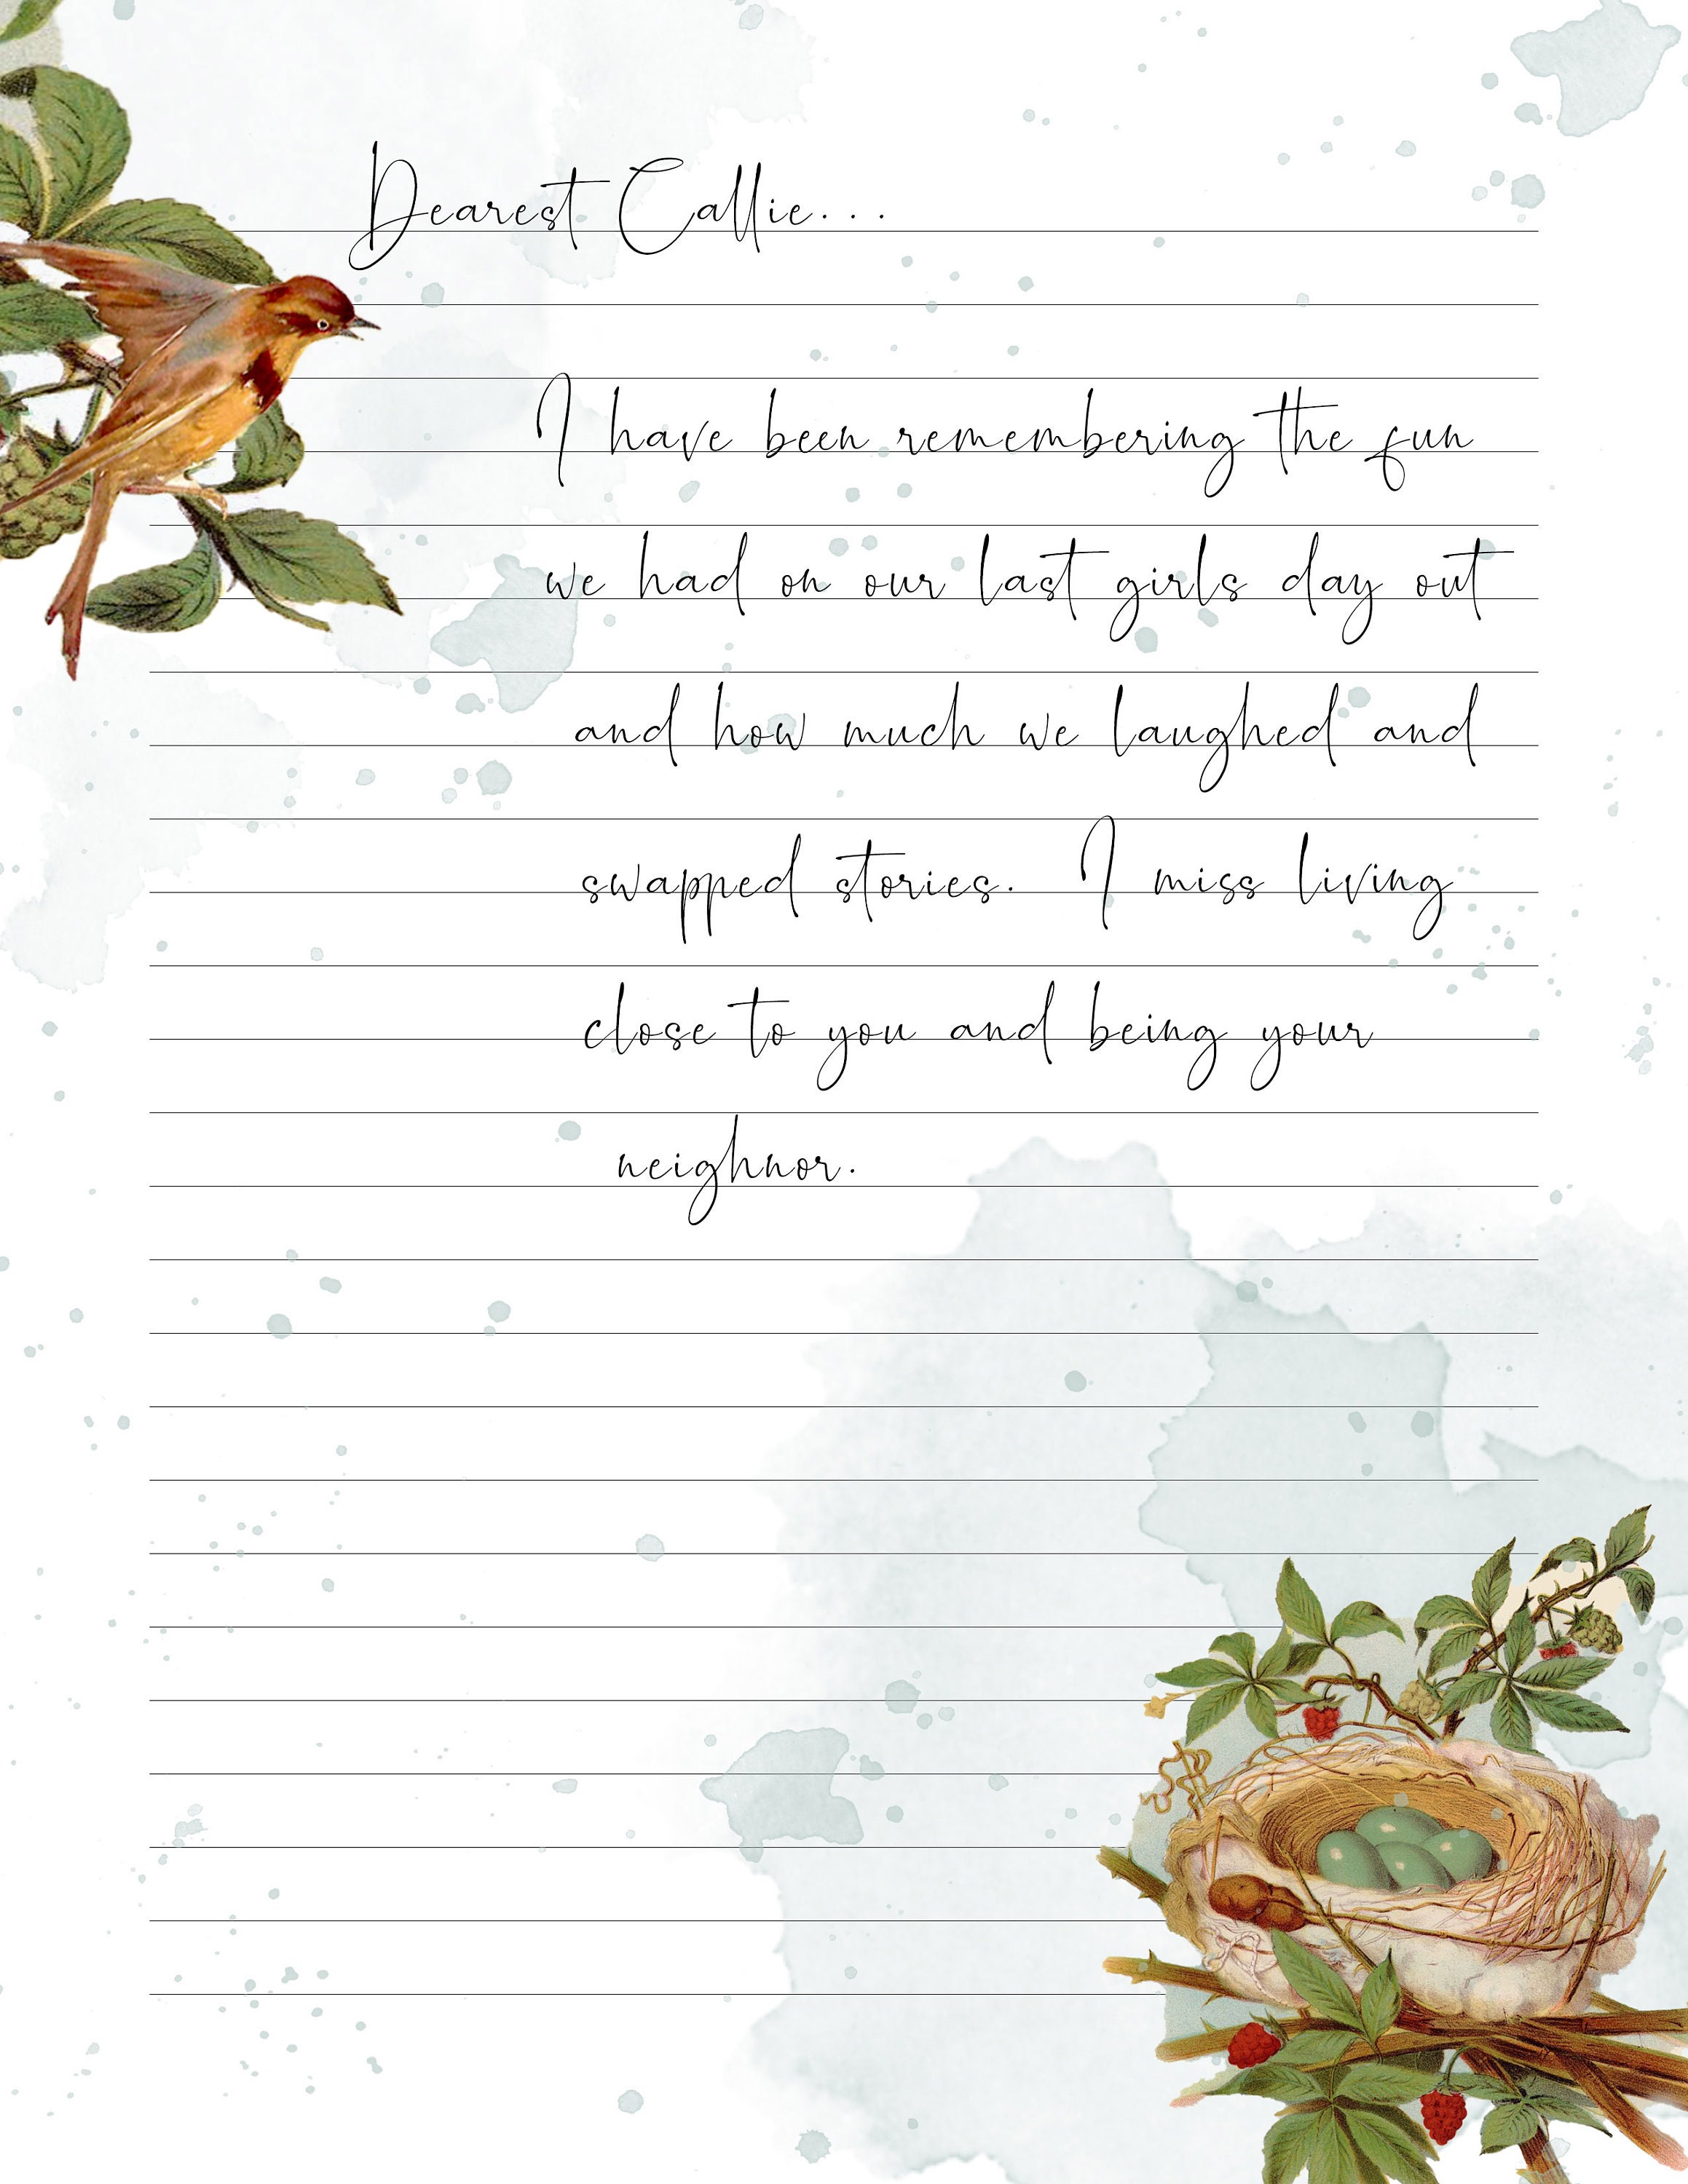 Dearest Callie...
I have been remembering the fun
we had on our last girls day out
and how much we laughed and
swapped stories. I miss living
close to you and being your
neighnor.